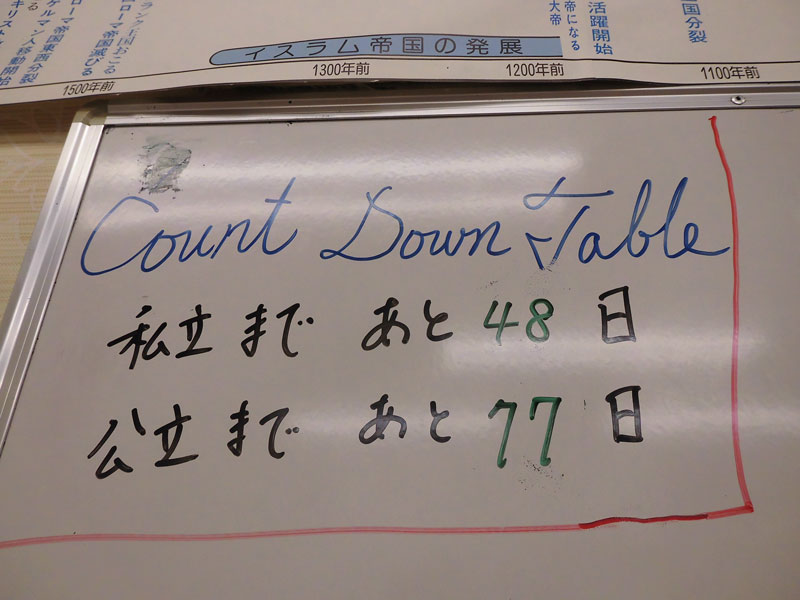 国分裂
活躍開始
帝になる
大帝
ランク王国おこる
ローマ帝国滅びる
ゲルマン人移動開始
ローマ帝国東西分裂
イスラム帝国の発展
1500年前 1300年前 1200年前 1100年前
Count Down Table
私立まで あと 48 日
公立まで あと 77 日